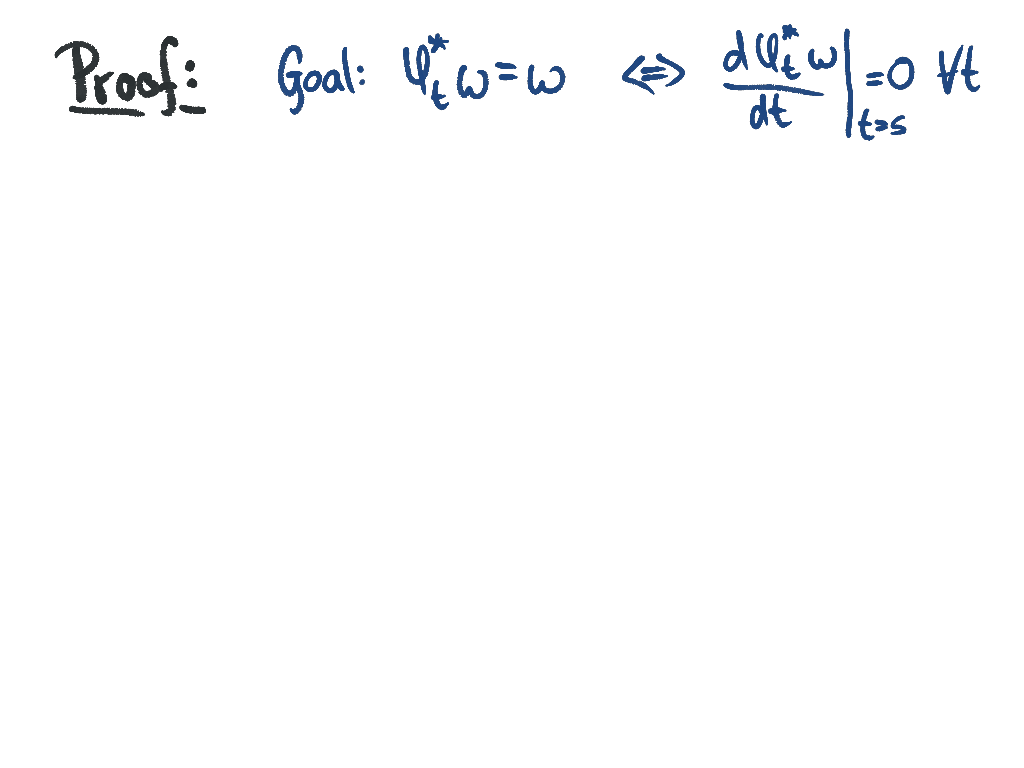 Proof: Goal: φ_t^* ω = ω <=> dφ_t^* ω / dt |_{t=s} = 0 ∀t